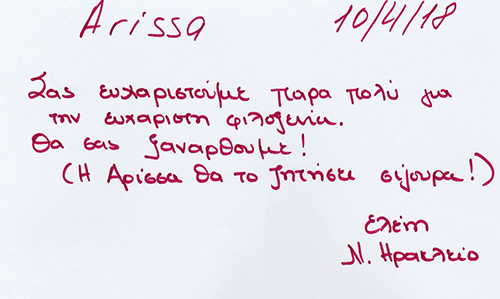 Arissa 10/4/18
Σας ευχαριστούμε πάρα πολύ για
την ευχαριστη φιλοξενία.
Θα σας ξαναρθουμε!
(Η Αρίσσα θα το ζητήσει σίγουρα!)
Ελένη
Ν. Ηρακλείο